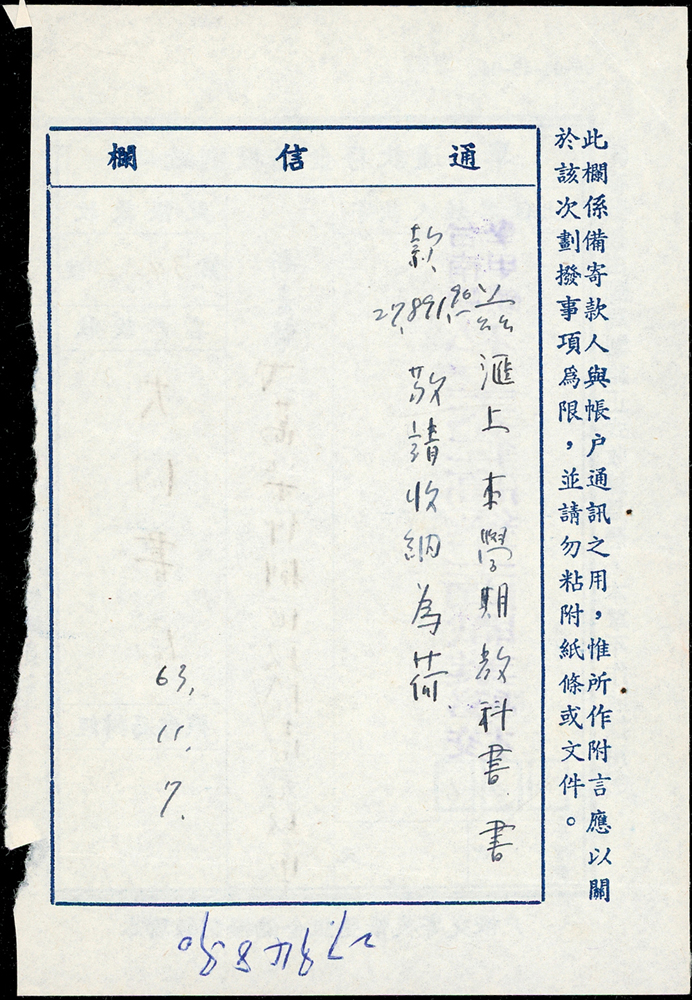 此欄係備寄款人與帳戶通訊之用，惟所作附言應以關
於該次劃撥事項為限，並請勿粘附紙條或文件。
通信欄
茲滙上本學期教科書書
款27,891.90敬請收納為荷
63.11.7.